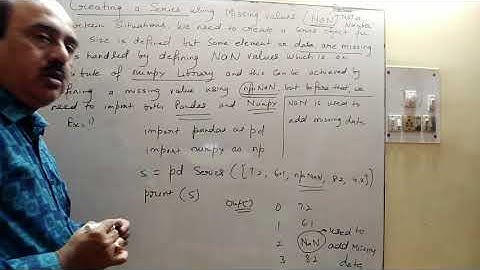 Creating a Series using Missing values (NaN) Not a Number
certain Situations, we need to create a series object for
size is defined but some element or data are missing
is handled by defining NaN values which is an
attribute of numpy Library and this can be achieved by
defining a missing value using np.NaN but before that we
need to import both Pandas and Numpy
NaN is used to
add missing data
Ex: 1)
import pandas as pd
import numpy as np
s = pd Series ([7.2, 6.1, np.NaN, 8.2, 4.2])
print (s)
Output
0 7.2
1 6.1
2 NaN
3 8.2
used to
add missing
data